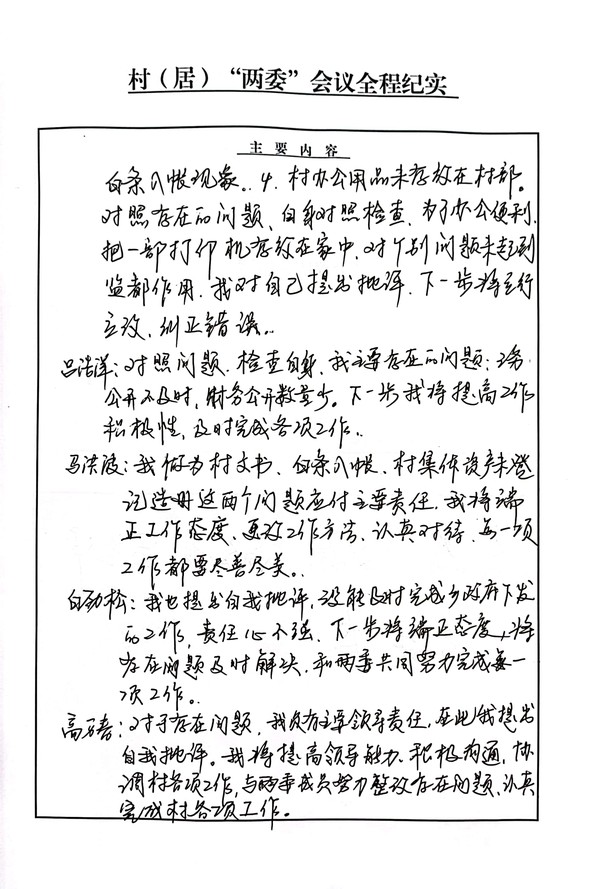 村（居）“两委”会议全程纪实
主要内容
白条入帐现象。4、村办公用品未存放在村部。
对照存在的问题、自身对照检查、为了办公便利、
把一部打印机存放在家中、对个别问题未起到
监督作用、我对自己提出批评、下一步将立行
立改、纠正错误。
吕浩洋：对照问题、检查自身、我主要存在的问题：三务
公开不及时，财务公开数量少。下一步我将提高工作
积极性，及时完成各项工作。
马洪波：我做为村文书、白条入帐、村集体资产未登
记造册这两个问题应付主要责任，我将端
正工作态度、更改工作方法、认真对待、每一项
工作都要尽善尽美。
白劲松：我也提出自我批评，没能及时完成乡政府下发
的工作，责任心不强、下一步将端正态度，将
存在问题及时解决、和两委共同努力完成每一
项工作。
高：对于存在问题，我负有主要领导责任，在此我提出
自我批评。我将提高领导能力、积极沟通，协
调村各项工作，与两委成员努力整改存在问题、认真
完成村各项工作。